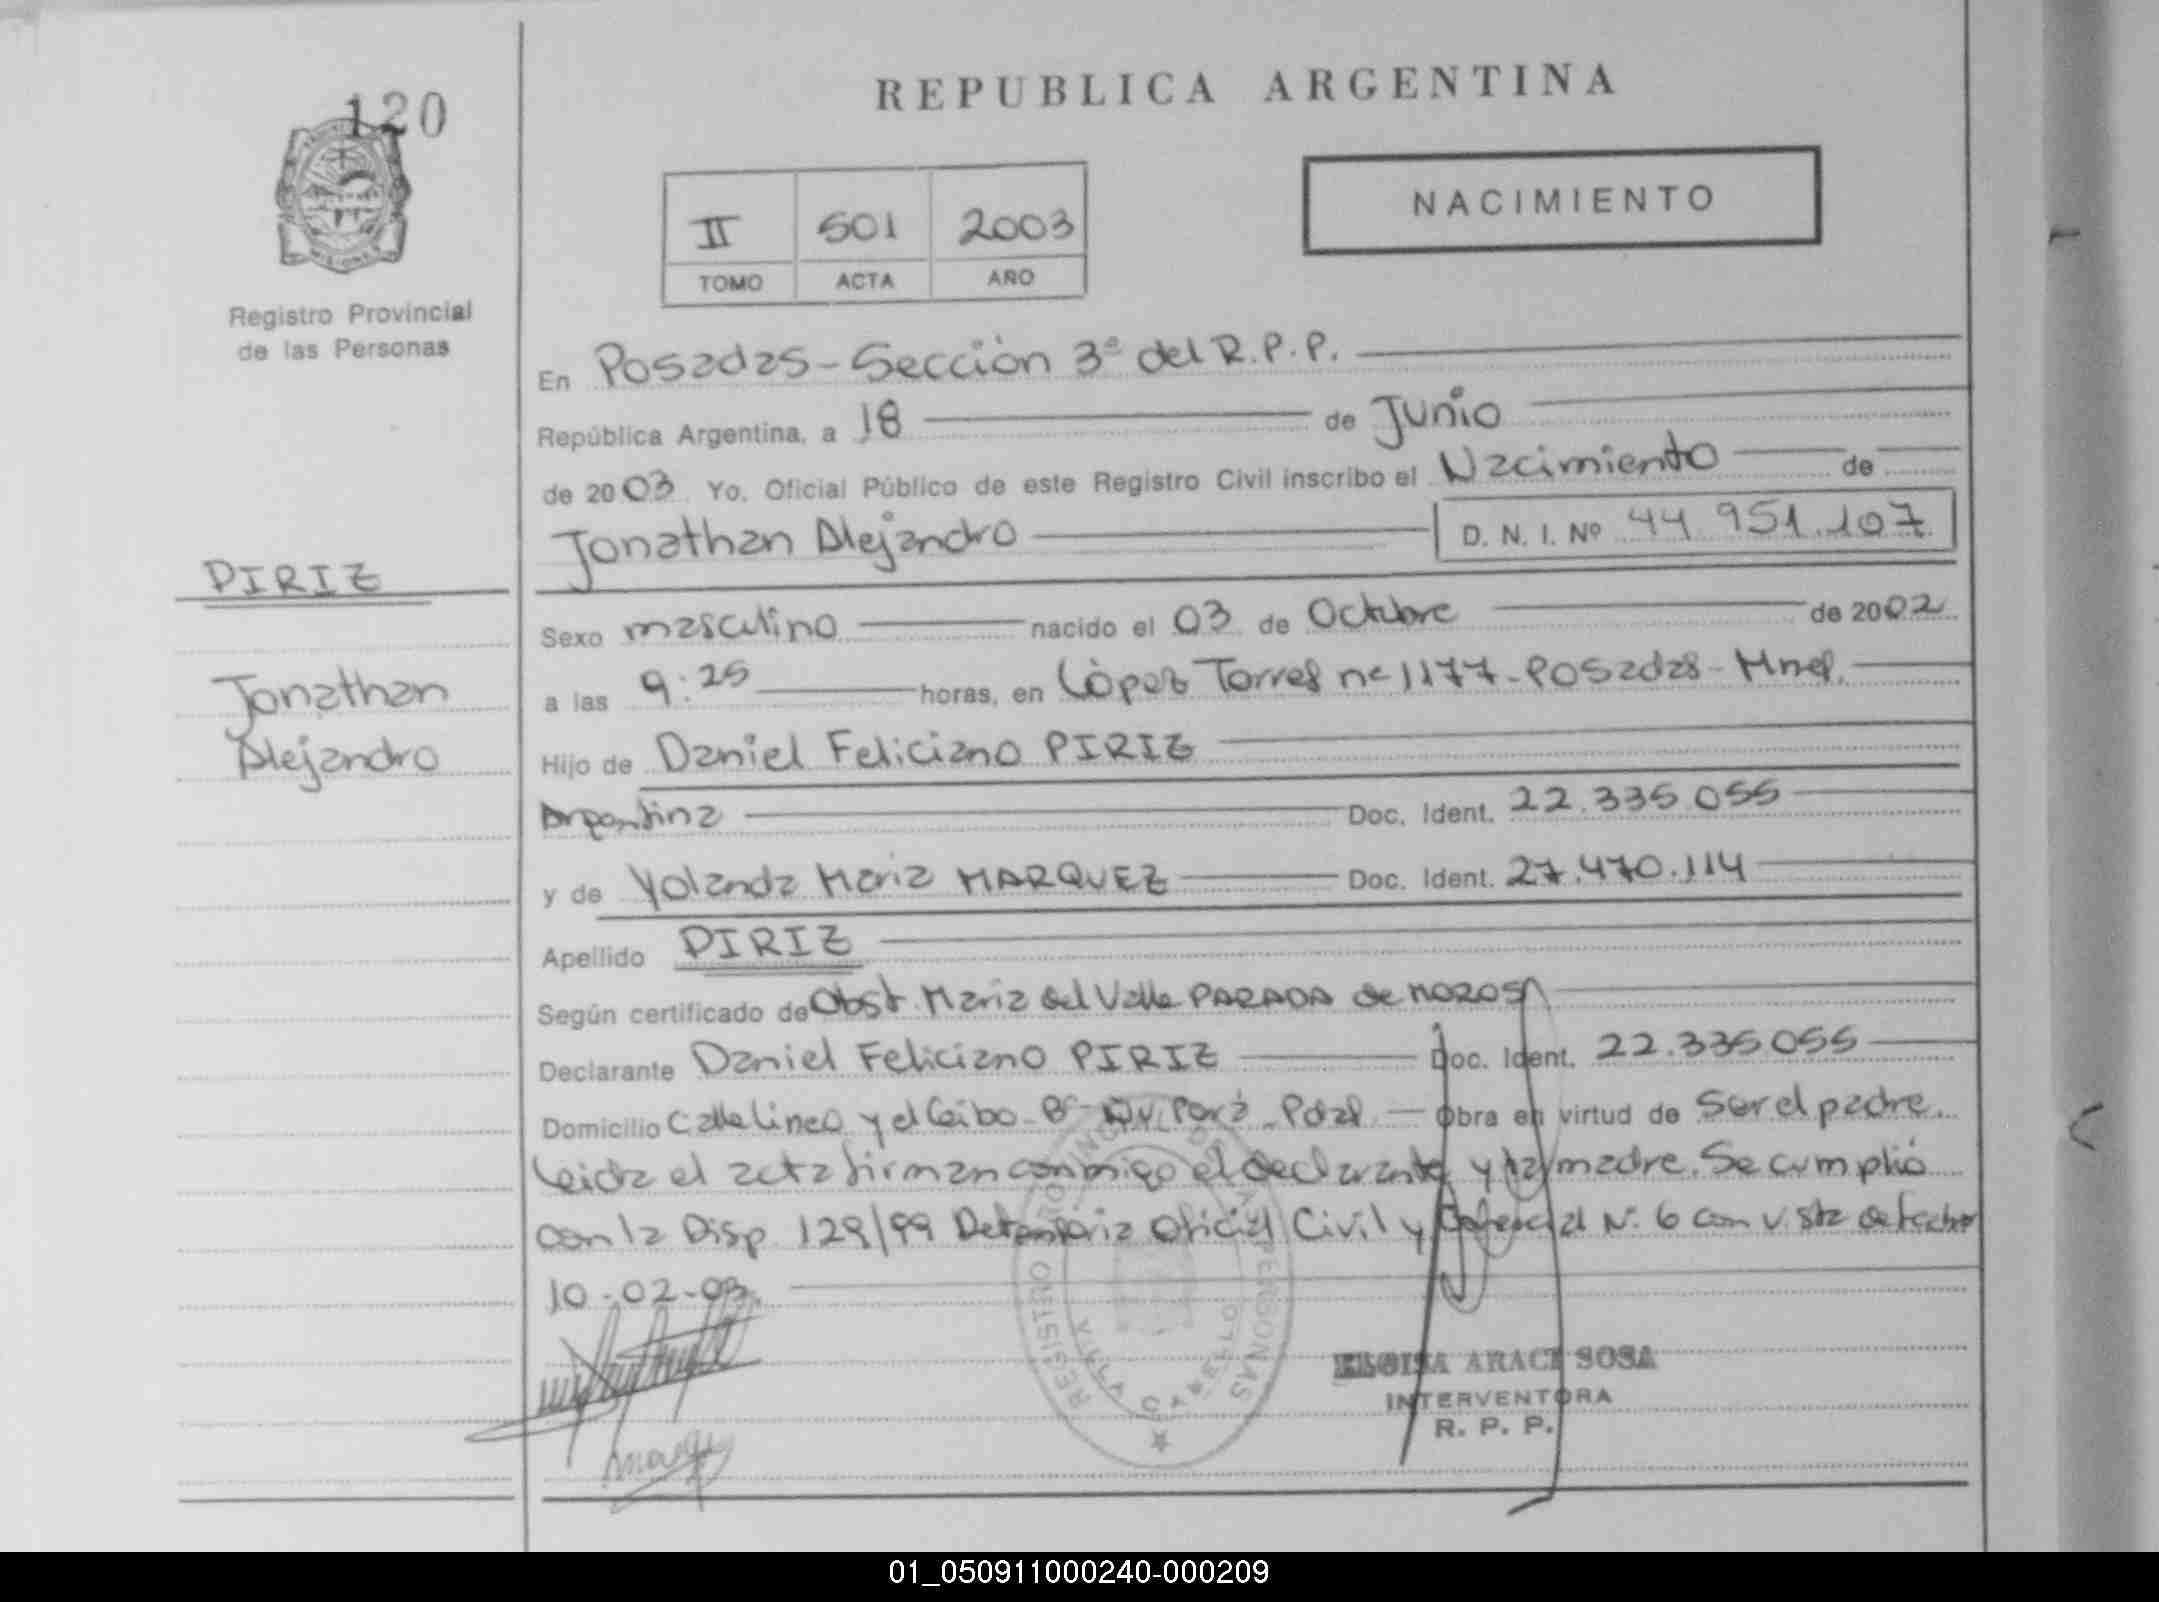 120
REPUBLICA ARGENTINA
NACIMIENTO
II 501 2003
TOMO ACTA AÑO
Registro Provincial
de las Personas
En Posadas - Sección 3º del R.P.P.
República Argentina, a 18 de Junio
de 2003 Yo, Oficial Público de este Registro Civil inscribo el Nacimiento de
Jonathan Alejandro D. N. I. Nº 44.951.107
PIRIZ
Jonathan
Alejandro
Sexo masculino nacido el 03 de Octubre de 2002
a las 9:25 horas, en López Torres nº 1177 - Posadas - Mnes.
Hijo de Daniel Feliciano PIRIZ
Argentina Doc. Ident. 22.335.055
y de Yolanda Maria MARQUEZ Doc. Ident. 27.470.114
Apellido PIRIZ
Según certificado de Obst. Maria del Valle PARADA de
Declarante Daniel Feliciano PIRIZ Doc. Ident. 22.335.055
Domicilio Calle Lineo y el Ceibo - Bº Pdas - Obra en virtud de Ser el padre.
Leida el acta firman conmigo el declarante y la madre. Se cumplió
con la Disp. 129/99 Defensoria Oficial Civil y Nº 6 con vista de fecha
10-02-03.
REGISTRO PROVINCIAL DE LAS PERSONAS
VILLA
ELOISA ARACI SOSA
INTERVENTORA
R. P. P.
01_050911000240-000209